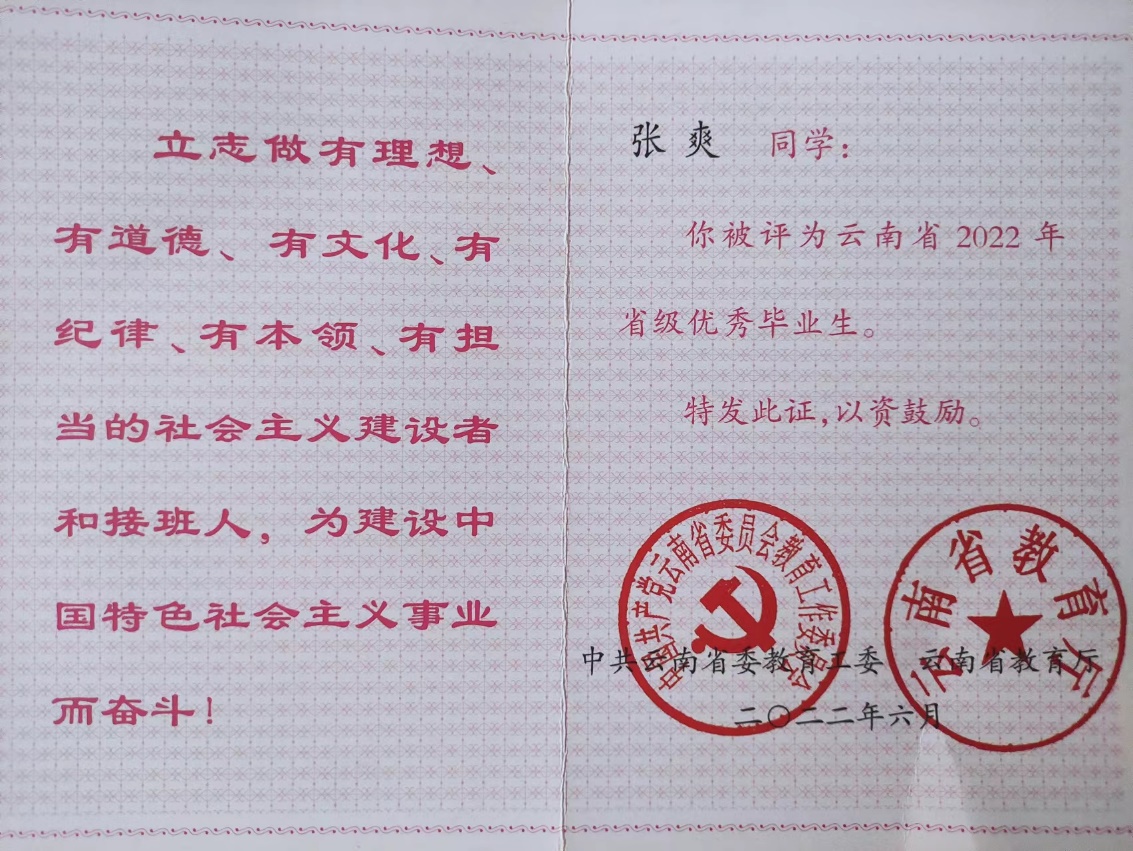 立志做有理想、
有道德、有文化、有
纪律、有本领、有担
当的社会主义建设者
和接班人，为建设中
国特色社会主义事业
而奋斗！
张爽 同学：
你被评为云南省2022年
省级优秀毕业生。
特发此证，以资鼓励。
中国共产党云南省委员会教育工作委员会
云南省教育厅
中共云南省委教育工委 云南省教育厅
二〇二二年六月